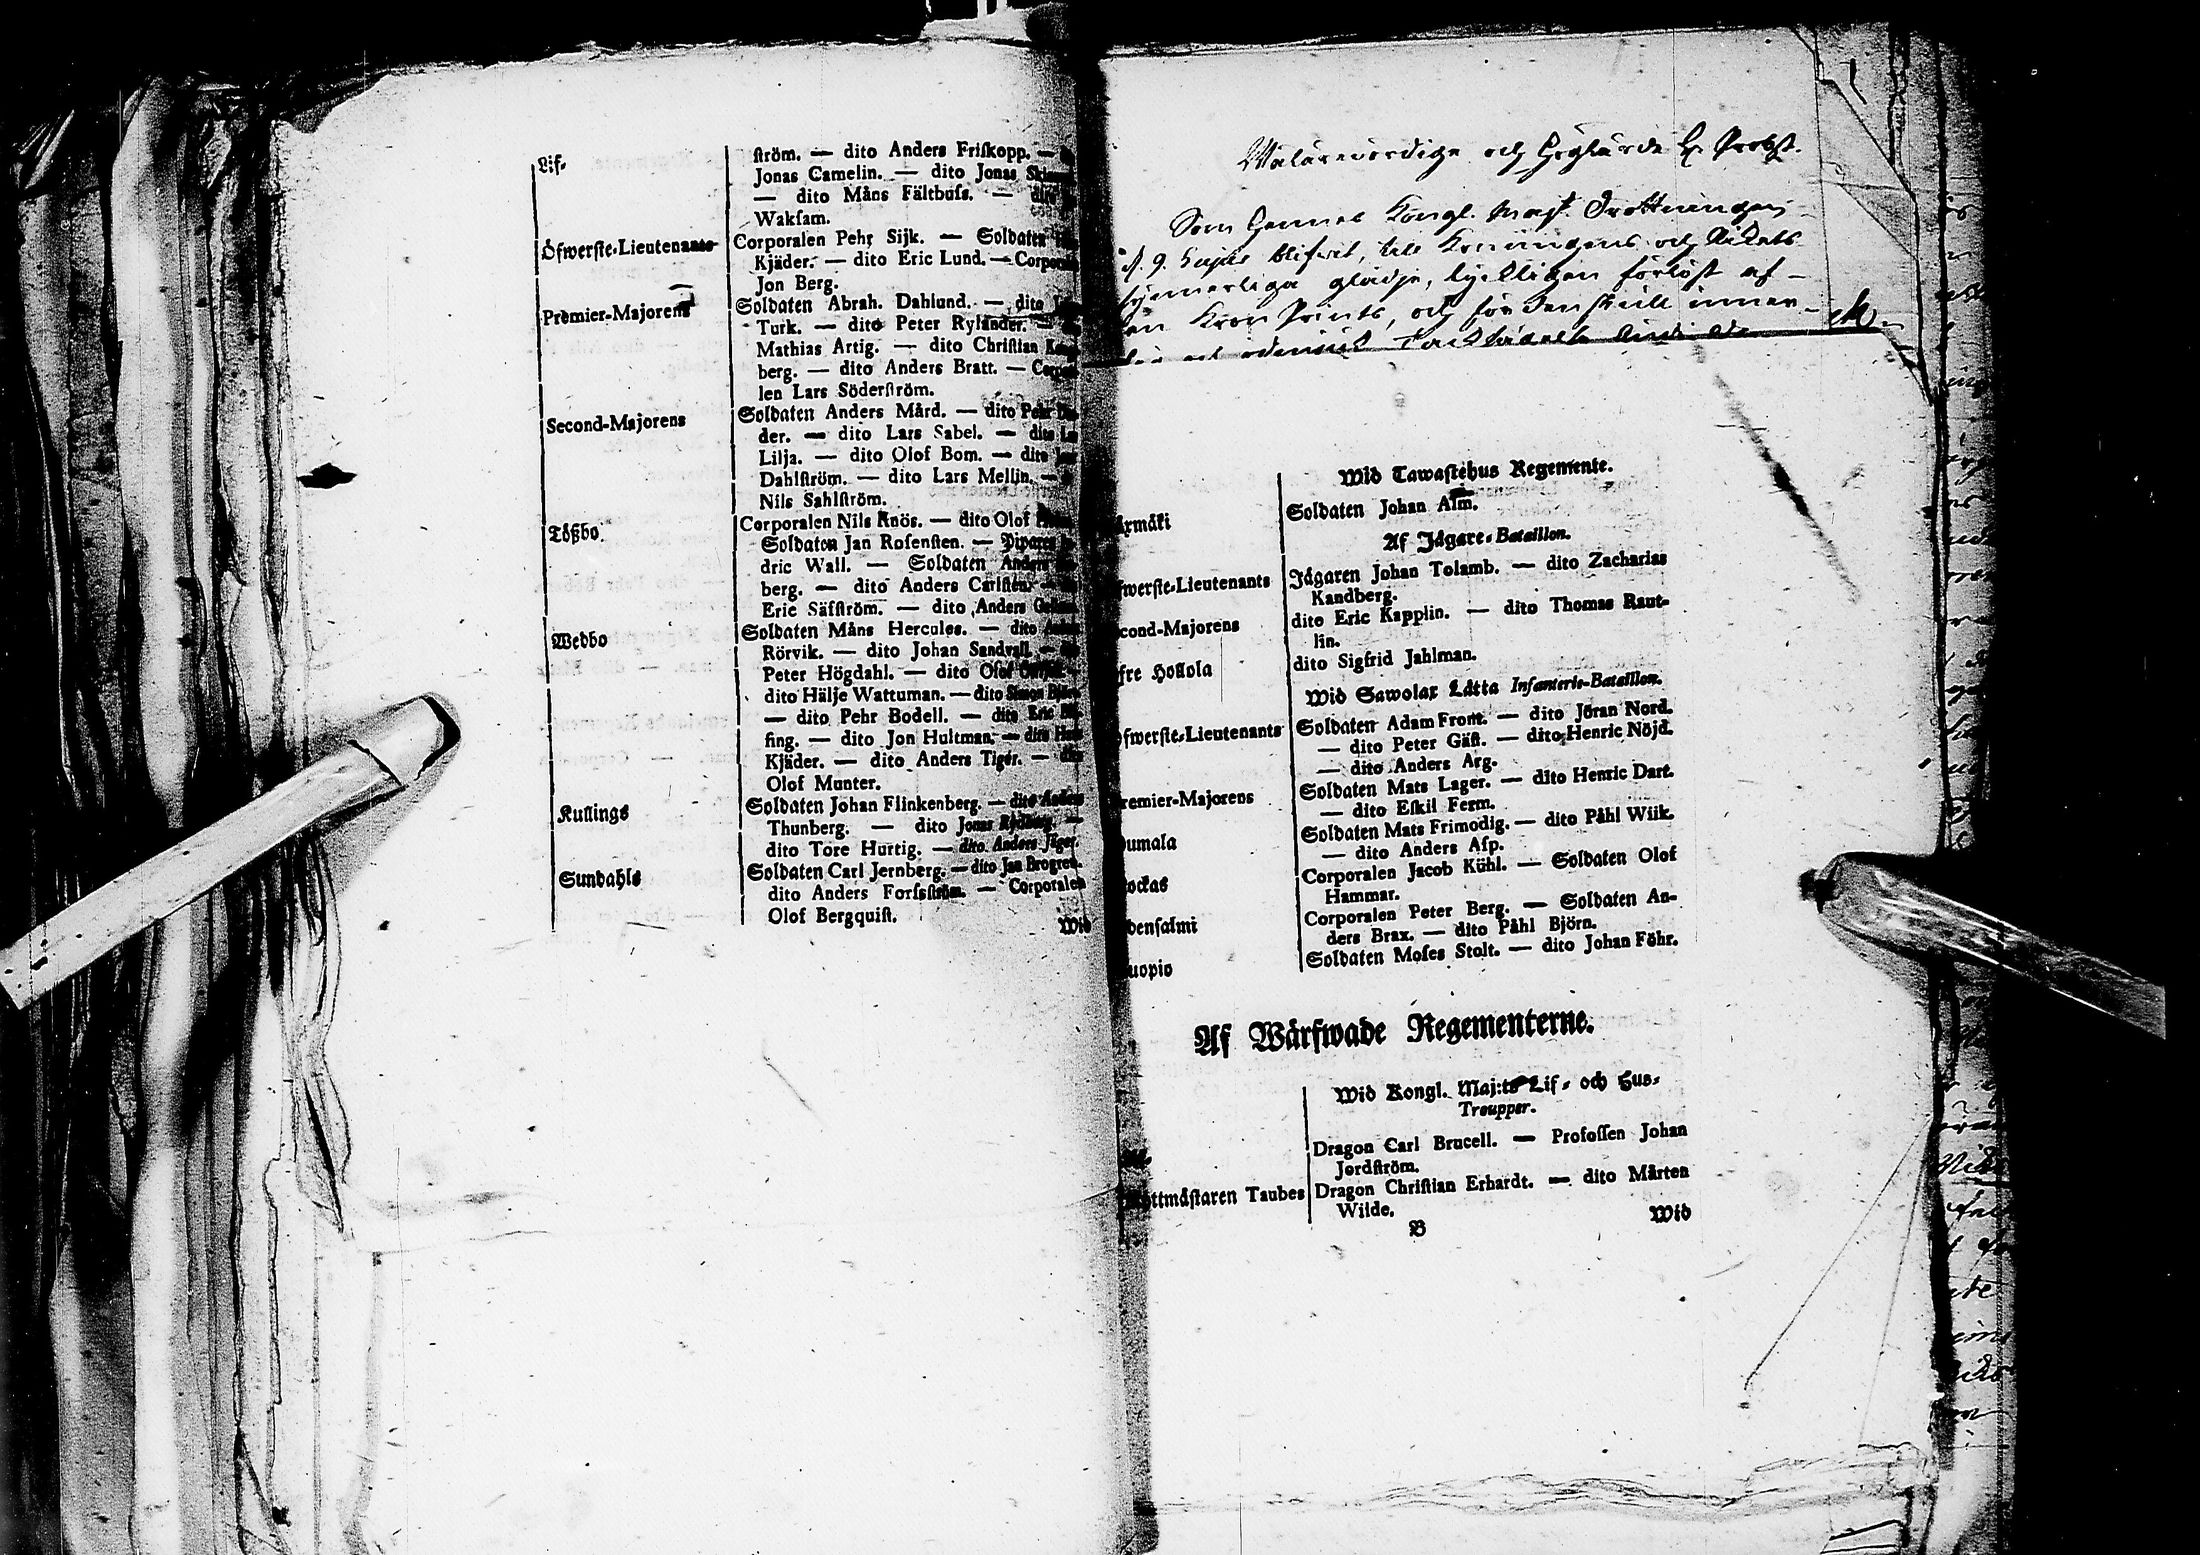 Lif-
ström. — dito Anders Friskopp. —
Jonas Camelin. — dito Jonas
— dito Måns Fältbuss. — dito
Waksam.
Öfwerste-Lieutenants
Corporalen Pehr Sijk. — Soldaten
Kjäder. — dito Eric Lund. — Corporalen
Jon Berg.
Premier-Majorens
Soldaten Abrah. Dahlund. — dito
Turk. — dito Peter Rylander. —
Mathias Artig. — dito Christian
berg. — dito Anders Bratt. — Corpora-
len Lars Söderström.
Second-Majorens
Soldaten Anders Mård. — dito Pehr
der. — dito Lars Sabel. — dito
Lilja. — dito Olof Bom. — dito
Dahlström. — dito Lars Mellin. —
Nils Sahlström.
Tößbo
Corporalen Nils Knös. — dito Olof
Soldaten Jan Rosensten. — Pipare
dric Wall. — Soldaten Anders
berg. — dito Anders Carlsten. —
Eric Säfström. — dito Anders
Wedbo
Soldaten Måns Hercules. — dito
Rörvik. — dito Johan Sandvall. —
Peter Högdahl. — dito Olof
dito Hälje Wattuman. — dito Simon
— dito Pehr Bodell. — dito Eric
sing. — dito Jon Hultman. — dito
Kjäder. — dito Anders Tiger. — dito
Olof Munter.
Kullings
Soldaten Johan Flinkenberg. — dito Anders
Thunberg. — dito Jonas Rydberg. —
dito Tore Hurtig. — dito Anders Jäger.
Sundahls
Soldaten Carl Jernberg. — dito Jan Brogren.
dito Anders Forssström. — Corporalen
Olof Bergquist.
Wid
Wälärevördige och Höglärde H. Probst.
Som Hennes Kongl. Maj:t Drottningen
d. 9. hujus blifvit, till Konungens och Rikets
synnerliga glädje, lyckligen förlöst af
en Kron Prints, och för den skull inner-
Wid Tawastehus Regemente.
Soldaten Johan Alm.
Af Jägare-Bataillon.
fwerste-Lieutenants
Jägaren Johan Tolamb. — dito Zacharias
Kandberg.
cond-Majorens
dito Eric Kapplin. — dito Thomas Raut-
lin.
fre Hollola
dito Sigfrid Jahlman.
Wid Sawolax Lätta Infanterie-Bataillon.
fwerste-Lieutenants
Soldaten Adam Front. — dito Jöran Nord.
— dito Peter Gäst. — dito Henric Nöjd.
— dito Anders Arg.
remier-Majorens
Soldaten Mats Lager. — dito Henric Dart.
— dito Eskil Ferm.
umala
Soldaten Mats Frimodig. — dito Påhl Wiik.
— dito Anders Asp.
ockas
Corporalen Jacob Kühl. — Soldaten Olof
Hammar.
densalmi
Corporalen Peter Berg. — Soldaten An-
ders Brax. — dito Påhl Björn.
uopio
Soldaten Moses Stolt. — dito Johan Föhr.
Af Wärfwade Regementerne.
Wid Kongl. Maj:ts Lif- och Hus-
Troupper.
Dragon Carl Brucell. — Profossen Johan
Jordström.
ottmästaren Taubes
Dragon Christian Erhardt. — dito Mårten
Wilde.
B
Wid